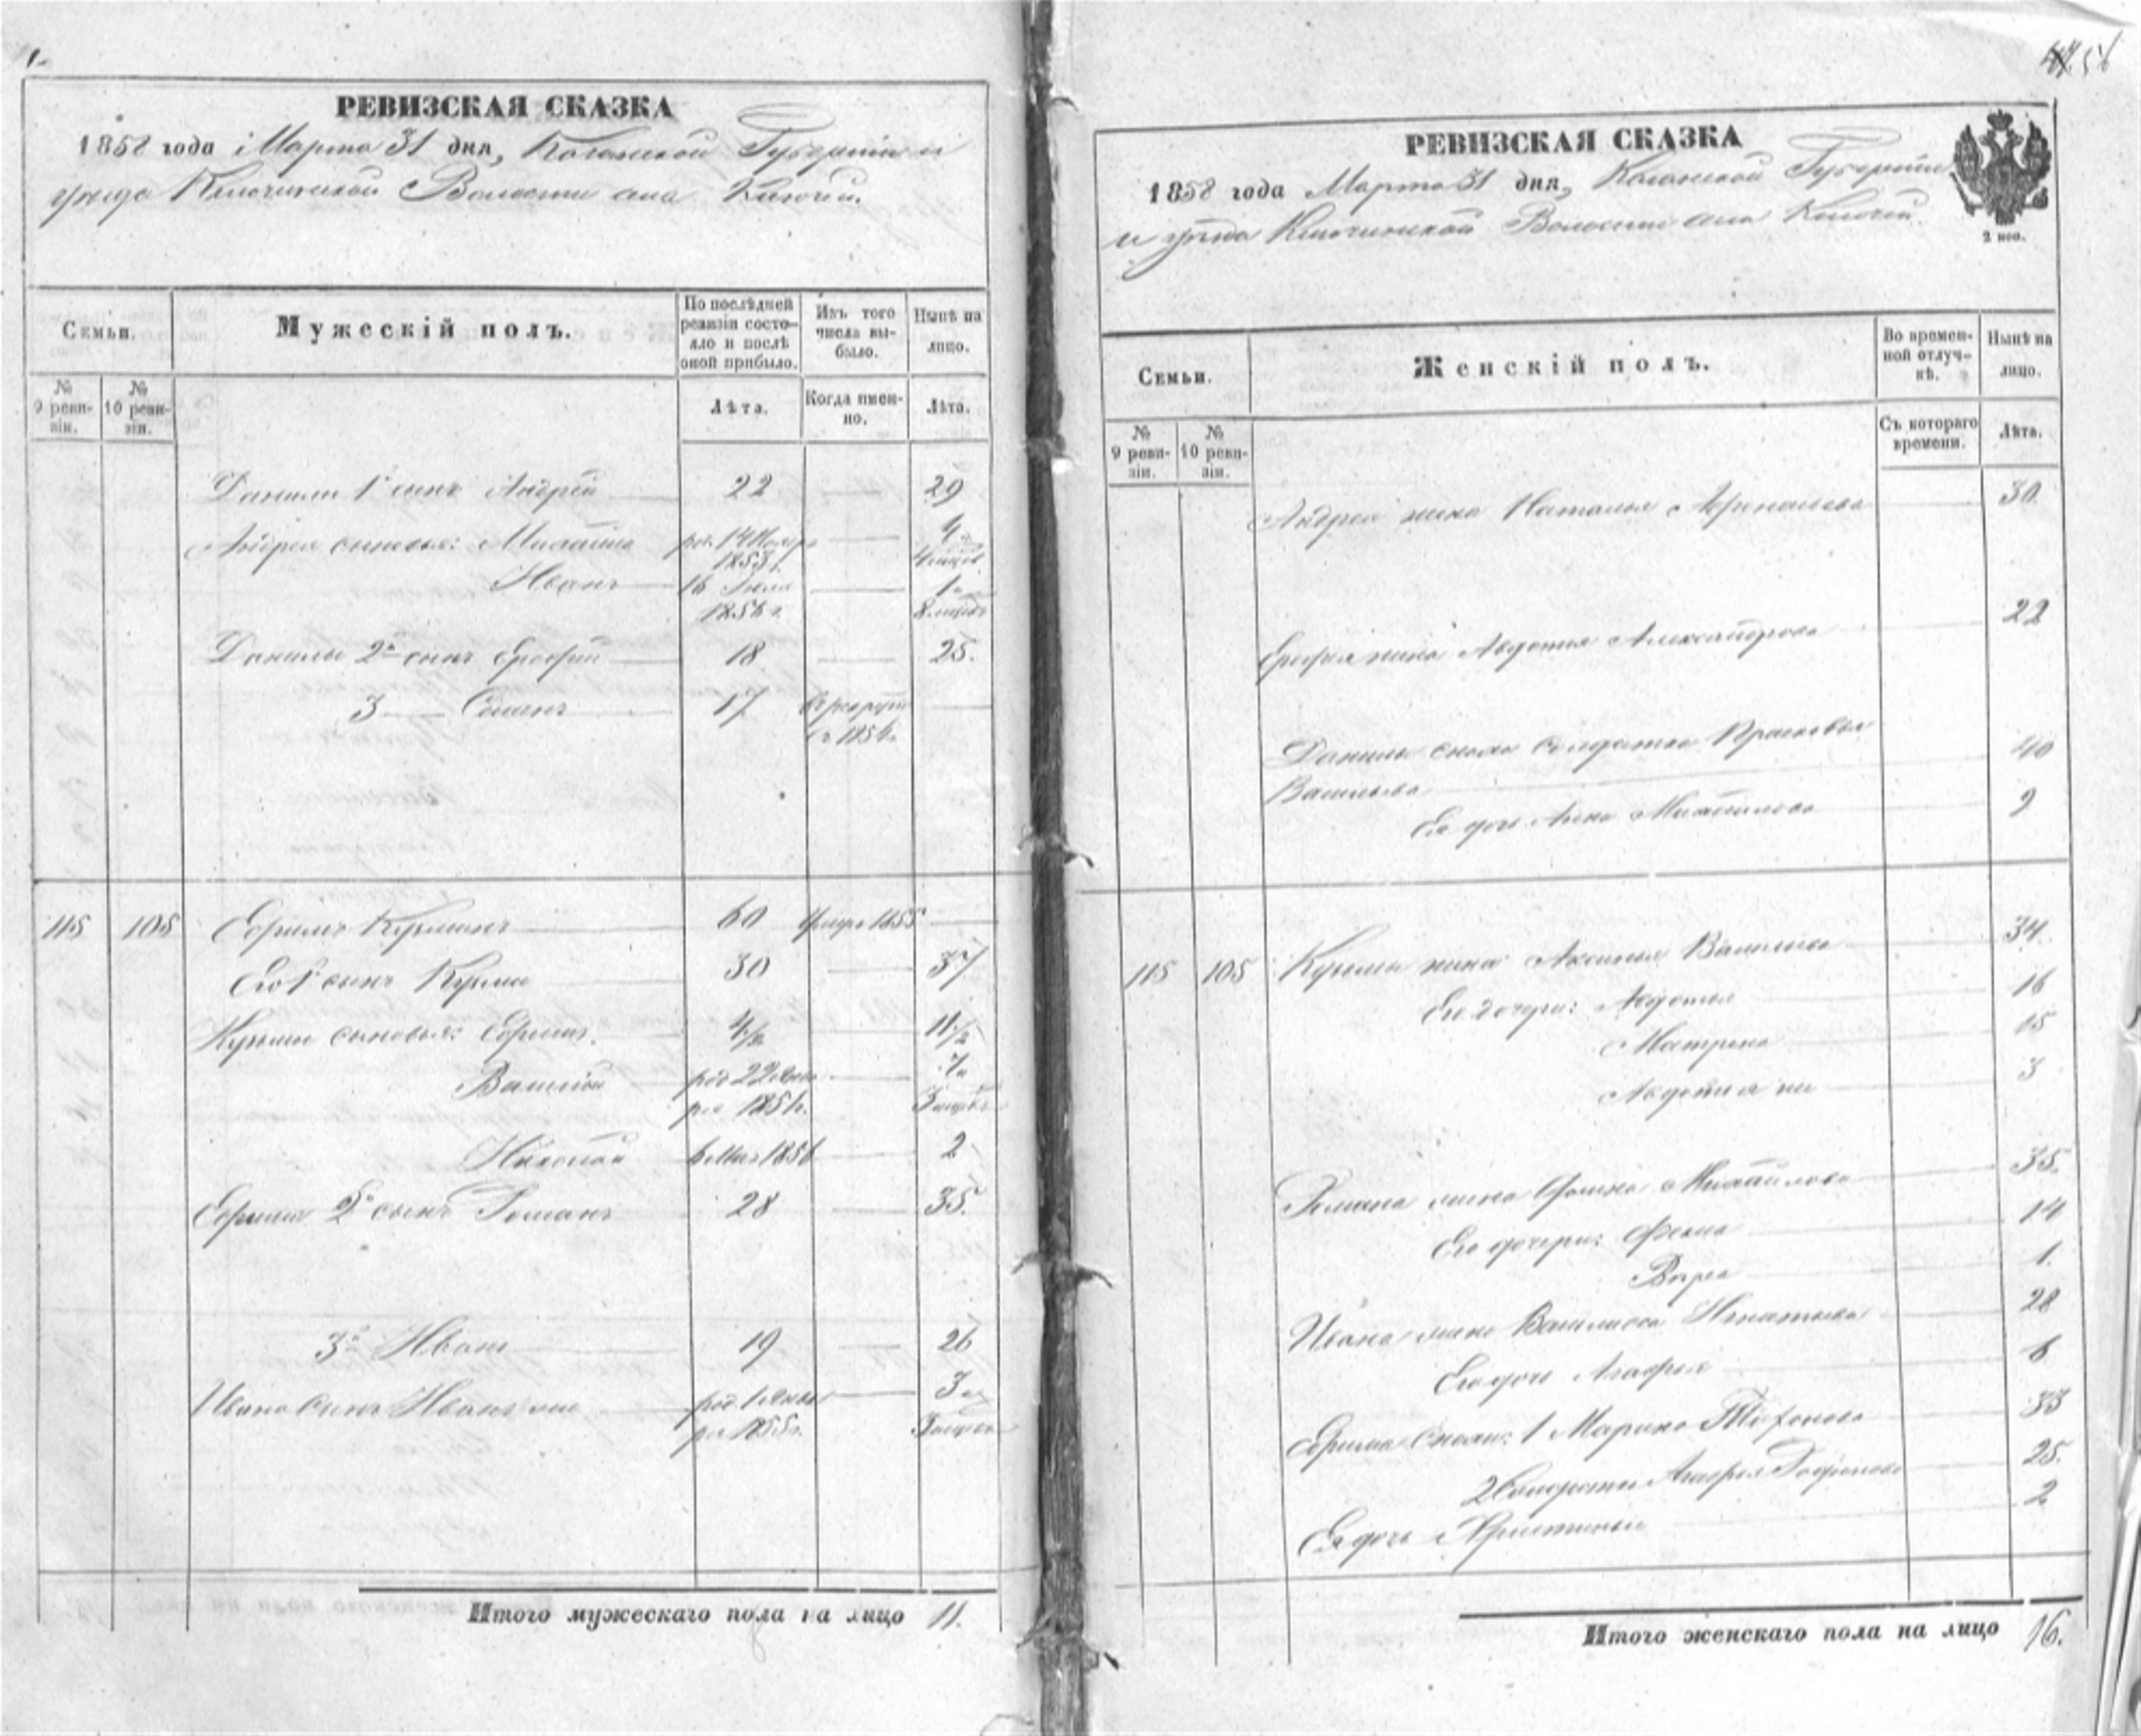 РЕВИЗСКАЯ СКАЗКА
1858 года Марта 31 дня, Казанской Губернии и
уезда Ключинской Волости села Ключи.
Семьи.
Мужескій полъ.
По послѣдней ревизіи состо-
яло и послѣ
оной прибыло.
Изъ того
числа вы-
было.
Нынѣ на
лицо.
№
9 реви-
зіи.
№
10 реви-
зіи.
Лѣта.
Когда имен-
но.
Лѣта.
Данилы 1й сынъ Андрей 22 29
Андрея сыновья: Михайла род. 14 Ноябр 1853 г. 4 4 мцов.
Иванъ 16 Іюля 1856 г. 1 8 мцов
Данилы 2й сынъ Ерофей 18 25.
3 Семенъ 17 в рекруты в 1854
115 105 Ефимъ Кузминъ 60 умре 1855
Его 1й сынъ Кузма 30 37
Кузмы сыновья: Ефимъ 4 1/2 11 1/2
Василій род 22 Янва ря 1851 г. 7 3 мцов
Николай 6 Мая 1856 2
Ефима 2й сынъ Романъ 28 35.
3й Иванъ 19 26
Ивана сынъ Иванъ же род. 1 Янва ря 1855 г. 3 3 мцов
Итого мужескаго пола на лицо 11.
56
РЕВИЗСКАЯ СКАЗКА
1858 года Марта 31 дня, Казанской Губерніи
и уезда Ключинской Волости села Ключи.
2 коп.
Семьи.
Женскій полъ.
Во времен-
ной отлуч-
кѣ.
Нынѣ на
лицо.
№
9 реви-
зіи.
№
10 реви-
зіи.
Съ котораго
времени.
Лѣта.
Андрея жена Наталья 30.
Ерофея жена Авдотья Александрова 22
Данилы сноха солдатка Прасковья 40
Васильева
Ея дочь Анна Михайлова 9
115 105 Кузмы жена Аксинья Васильева 34.
Его дочери: Авдотья 16
Матрена 15
Авдотья же 3
Романа жена Михайлова 35.
Его дочери: Фекла 14
1.
Ивана жена Василиса Игнатьева 28
Его дочь Агафья 6
Ефима снохи: 1 Марина 33
2 Солдатка Агафья 25.
Ея дочь Христинья 2
Итого женскаго пола на лицо 16.